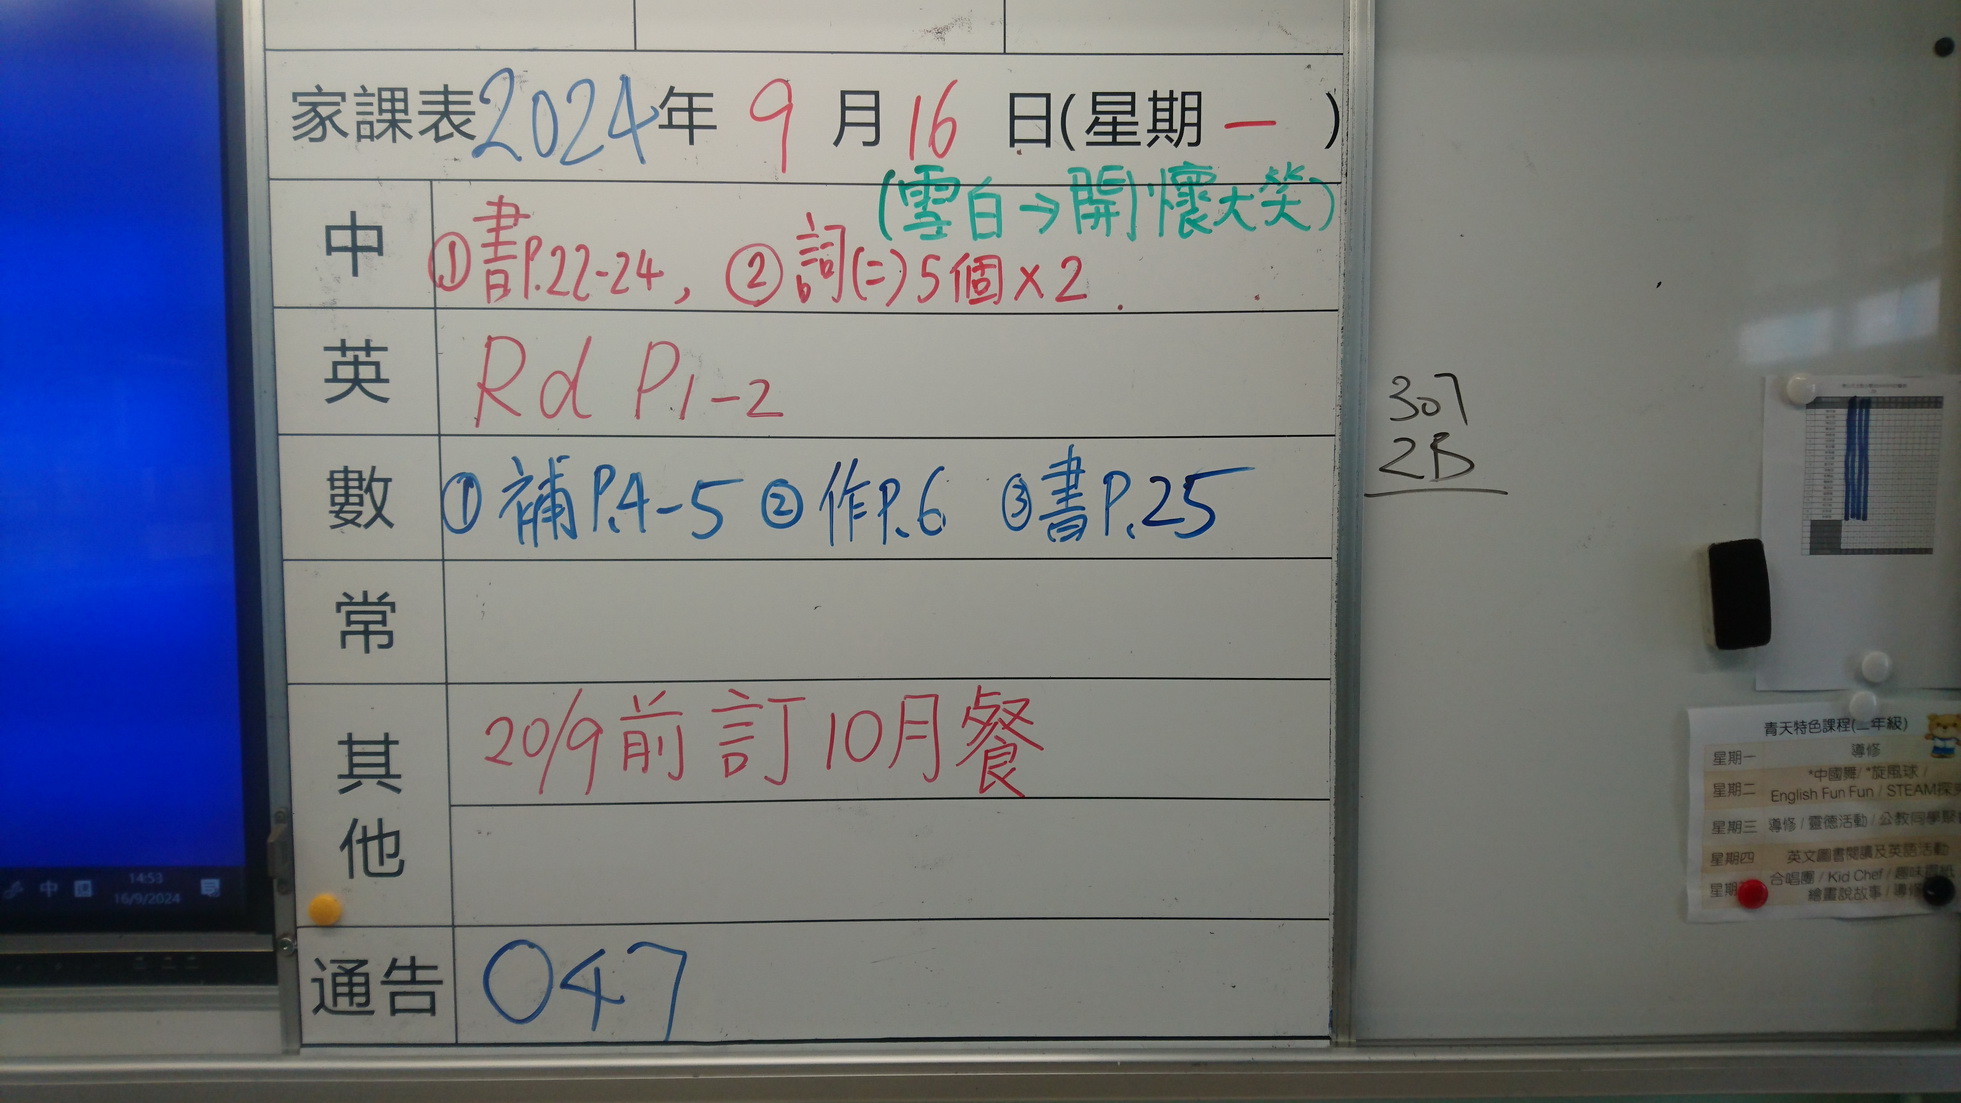 家課表2024年 9 月 16 日(星期 一 )
中
(雪白→開懷大笑)
①書P.22-24, ②詞(二)5個×2
英 Rd P1-2
數 ①補P.4-5 ②作P.6 ③書P.25
常
其他
20/9前訂10月餐
通告 047
307
2B
中
14:53
16/9/2024
青天特色課程(二年級)
星期一 導修
星期二 *中國舞/ *旋風球 /
English Fun Fun / STEAM探
星期三 導修 / 靈德活動 / 公教同學聚
星期四 英文圖書閱讀及英語活動
星期 合唱團 / Kid Chef / 趣味
繪畫說故事 / 導修